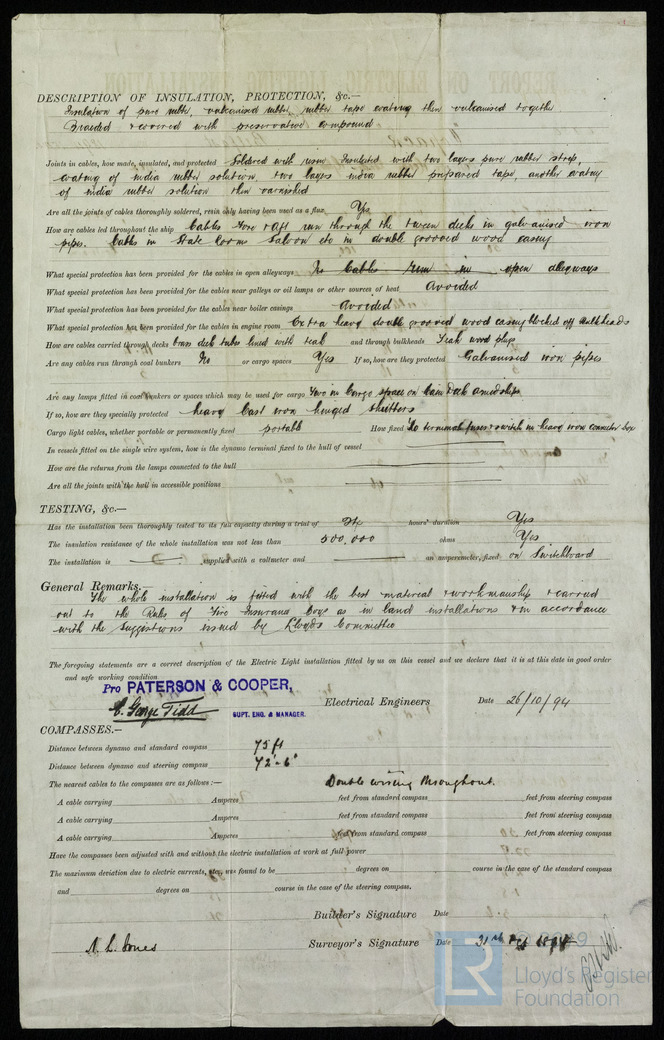 DESCRIPTION OF INSULATION, PROTECTION, &c.—
Insulation of pure rubber, vulcanised rubber, rubber tape coating then vulcanised together
Braided & covered with preservative compound
Joints in cables, how made, insulated, and protected Soldered with resin Insulated with two layers pure rubber strip,
coating of india rubber solution, two layers india rubber prepared tape, another coating
of india rubber solution then varnished
Are all the joints of cables thoroughly soldered, resin only having been used as a flux Yes
How are cables led throughout the ship Cables fore & aft run through the tween decks in galvanised iron
pipes. Cables in State Rooms Saloon etc in double grooved wood casing
What special protection has been provided for the cables in open alleyways No Cables run in open alleyways
What special protection has been provided for the cables near galleys or oil lamps or other sources of heat Avoided
What special protection has been provided for the cables near boiler casings Avoided
What special protection has been provided for the cables in engine room Extra heavy double grooved wood casing blocked off bulkheads
How are cables carried through decks brass deck tubes lined with teak and through bulkheads Teak wood plugs
Are any cables run through coal bunkers No or cargo spaces Yes If so, how are they protected Galvanised iron pipes
Are any lamps fitted in coal bunkers or spaces which may be used for cargo Two in Cargo space on Main Deck amidships
If so, how are they specially protected heavy Cast iron hinged shutters
Cargo light cables, whether portable or permanently fixed portable How fixed To terminal fuses & switch in heavy iron connector box
In vessels fitted on the single wire system, how is the dynamo terminal fixed to the hull of vessel
How are the returns from the lamps connected to the hull
Are all the joints with the hull in accessible positions
TESTING, &c.—
Has the installation been thoroughly tested to its full capacity during a trial of Six hours' duration Yes
The insulation resistance of the whole installation was not less than 500,000 ohms Yes
The installation is supplied with a voltmeter and an amperemeter, fixed on Switchboard
General Remarks.—
The whole installation is fitted with the best material & workmanship & carried
out to the Rules of Fire Insurance Coys as in land installations & in accordance
with the Suggestions issued by Lloyds Committee
The foregoing statements are a correct description of the Electric Light installation fitted by us on this vessel and we declare that it is at this date in good order
and safe working condition
Pro PATERSON & COOPER,
C. George Tidd SUPT. ENG. & MANAGER. Electrical Engineers Date 26/10/94
COMPASSES.—
Distance between dynamo and standard compass 75 ft
Distance between dynamo and steering compass 72'-6"
The nearest cables to the compasses are as follows:— Double wiring throughout.
A cable carrying Amperes feet from standard compass feet from steering compass
A cable carrying Amperes feet from standard compass feet from steering compass
A cable carrying Amperes feet from standard compass feet from steering compass
Have the compasses been adjusted with and without the electric installation at work at full power
The maximum deviation due to electric currents, etc., was found to be degrees on course in the case of the standard compass
and degrees on course in the case of the steering compass.
Builder's Signature Date
A. L. Jones Surveyor's Signature Date 31st 1894
© 2019
LR Lloyd's Register
Foundation